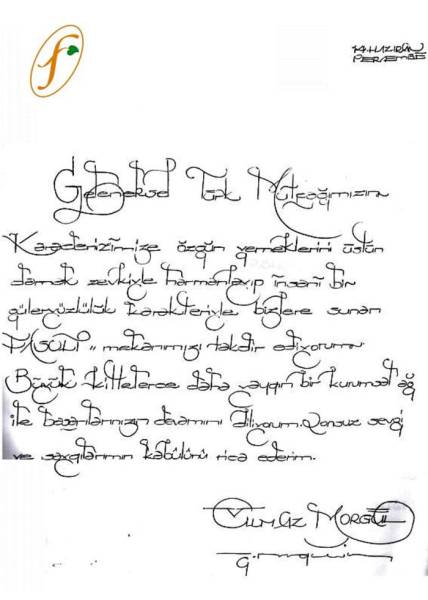 f
14 HAZİRAN
PERŞEMBE
Geleneksel Türk Mutfağımızın
Karadenizimize özgün yemeklerini üstün
damak zevkiyle harmanlayıp insanî bir
güleryüzlülük karakteriyle bizlere sunan
FASULİ,, mekanımızı takdir ediyorum
Büyük kitlelerce daha yaygın bir kurumsal ağ
ile başarılarınızın devamını diliyorum. Sonsuz sevgi
ve saygılarımın kabülünü rica ederim.
YILMAZ MORGÜL